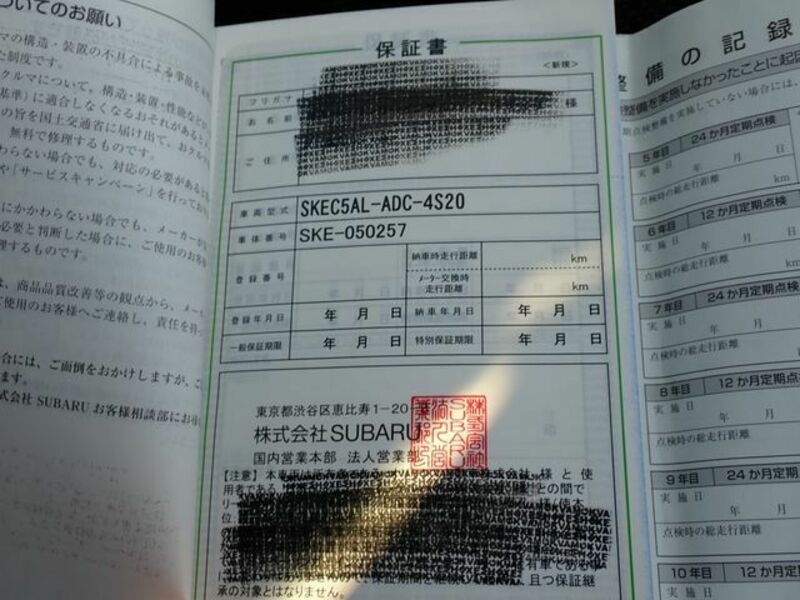 ついてのお願い
マの構造・装置の不具合による事故を
た制度です。
クルマについて、構造・装置・性能など
基準）に適合しなくなるおそれがある
の旨を国土交通省に届け出て、おクル
無料で修理するものです。
わらない場合でも、対応の必要がある
や「サービスキャンペーン」を行ってお
にかかわらない場合でも、メーカーが
必要と判断した場合に、ご使用のお客
理するものです。
は、商品品質改善等の観点から、メー
ご使用のお客様へご連絡し、責任を持っ
合には、ご面倒をおかけしますが、ご
ます。
式会社 SUBARU お客様相談部にお
保証書
＜新規＞
フリガナ
お名前
様
ご住所
車両型式 SKEC5AL-ADC-4S20
車体番号 SKE-050257
登録番号
納車時走行距離 km
メーター交換時走行距離 km
登録年月日 年 月 日
納車年月日 年 月 日
一般保証期限 年 月 日
特別保証期限 年 月 日
東京都渋谷区恵比寿1-20
株式会社SUBARU
国内営業本部 法人営業部
【注意】
様と使
用者である
との間で
リー
位
有車である
且つ保証継
承の対象とはなりません。
整備の記録
整備を実施しなかったことに起因
期点検整備を実施していない場合には、
5年目 24か月定期点検
実施日 年 月 日
点検時の総走行距離 km
6年目 12か月定期点検
実施日 年 月 日
点検時の総走行距離 km
7年目 24か月定期点検
実施日 年 月
点検時の総走行距離
8年目 12か月定期点検
実施日 年 月
点検時の総走行距離
9年目 24か月定期
実施日 年 月
点検時の総走行距離
10年目 12か月定